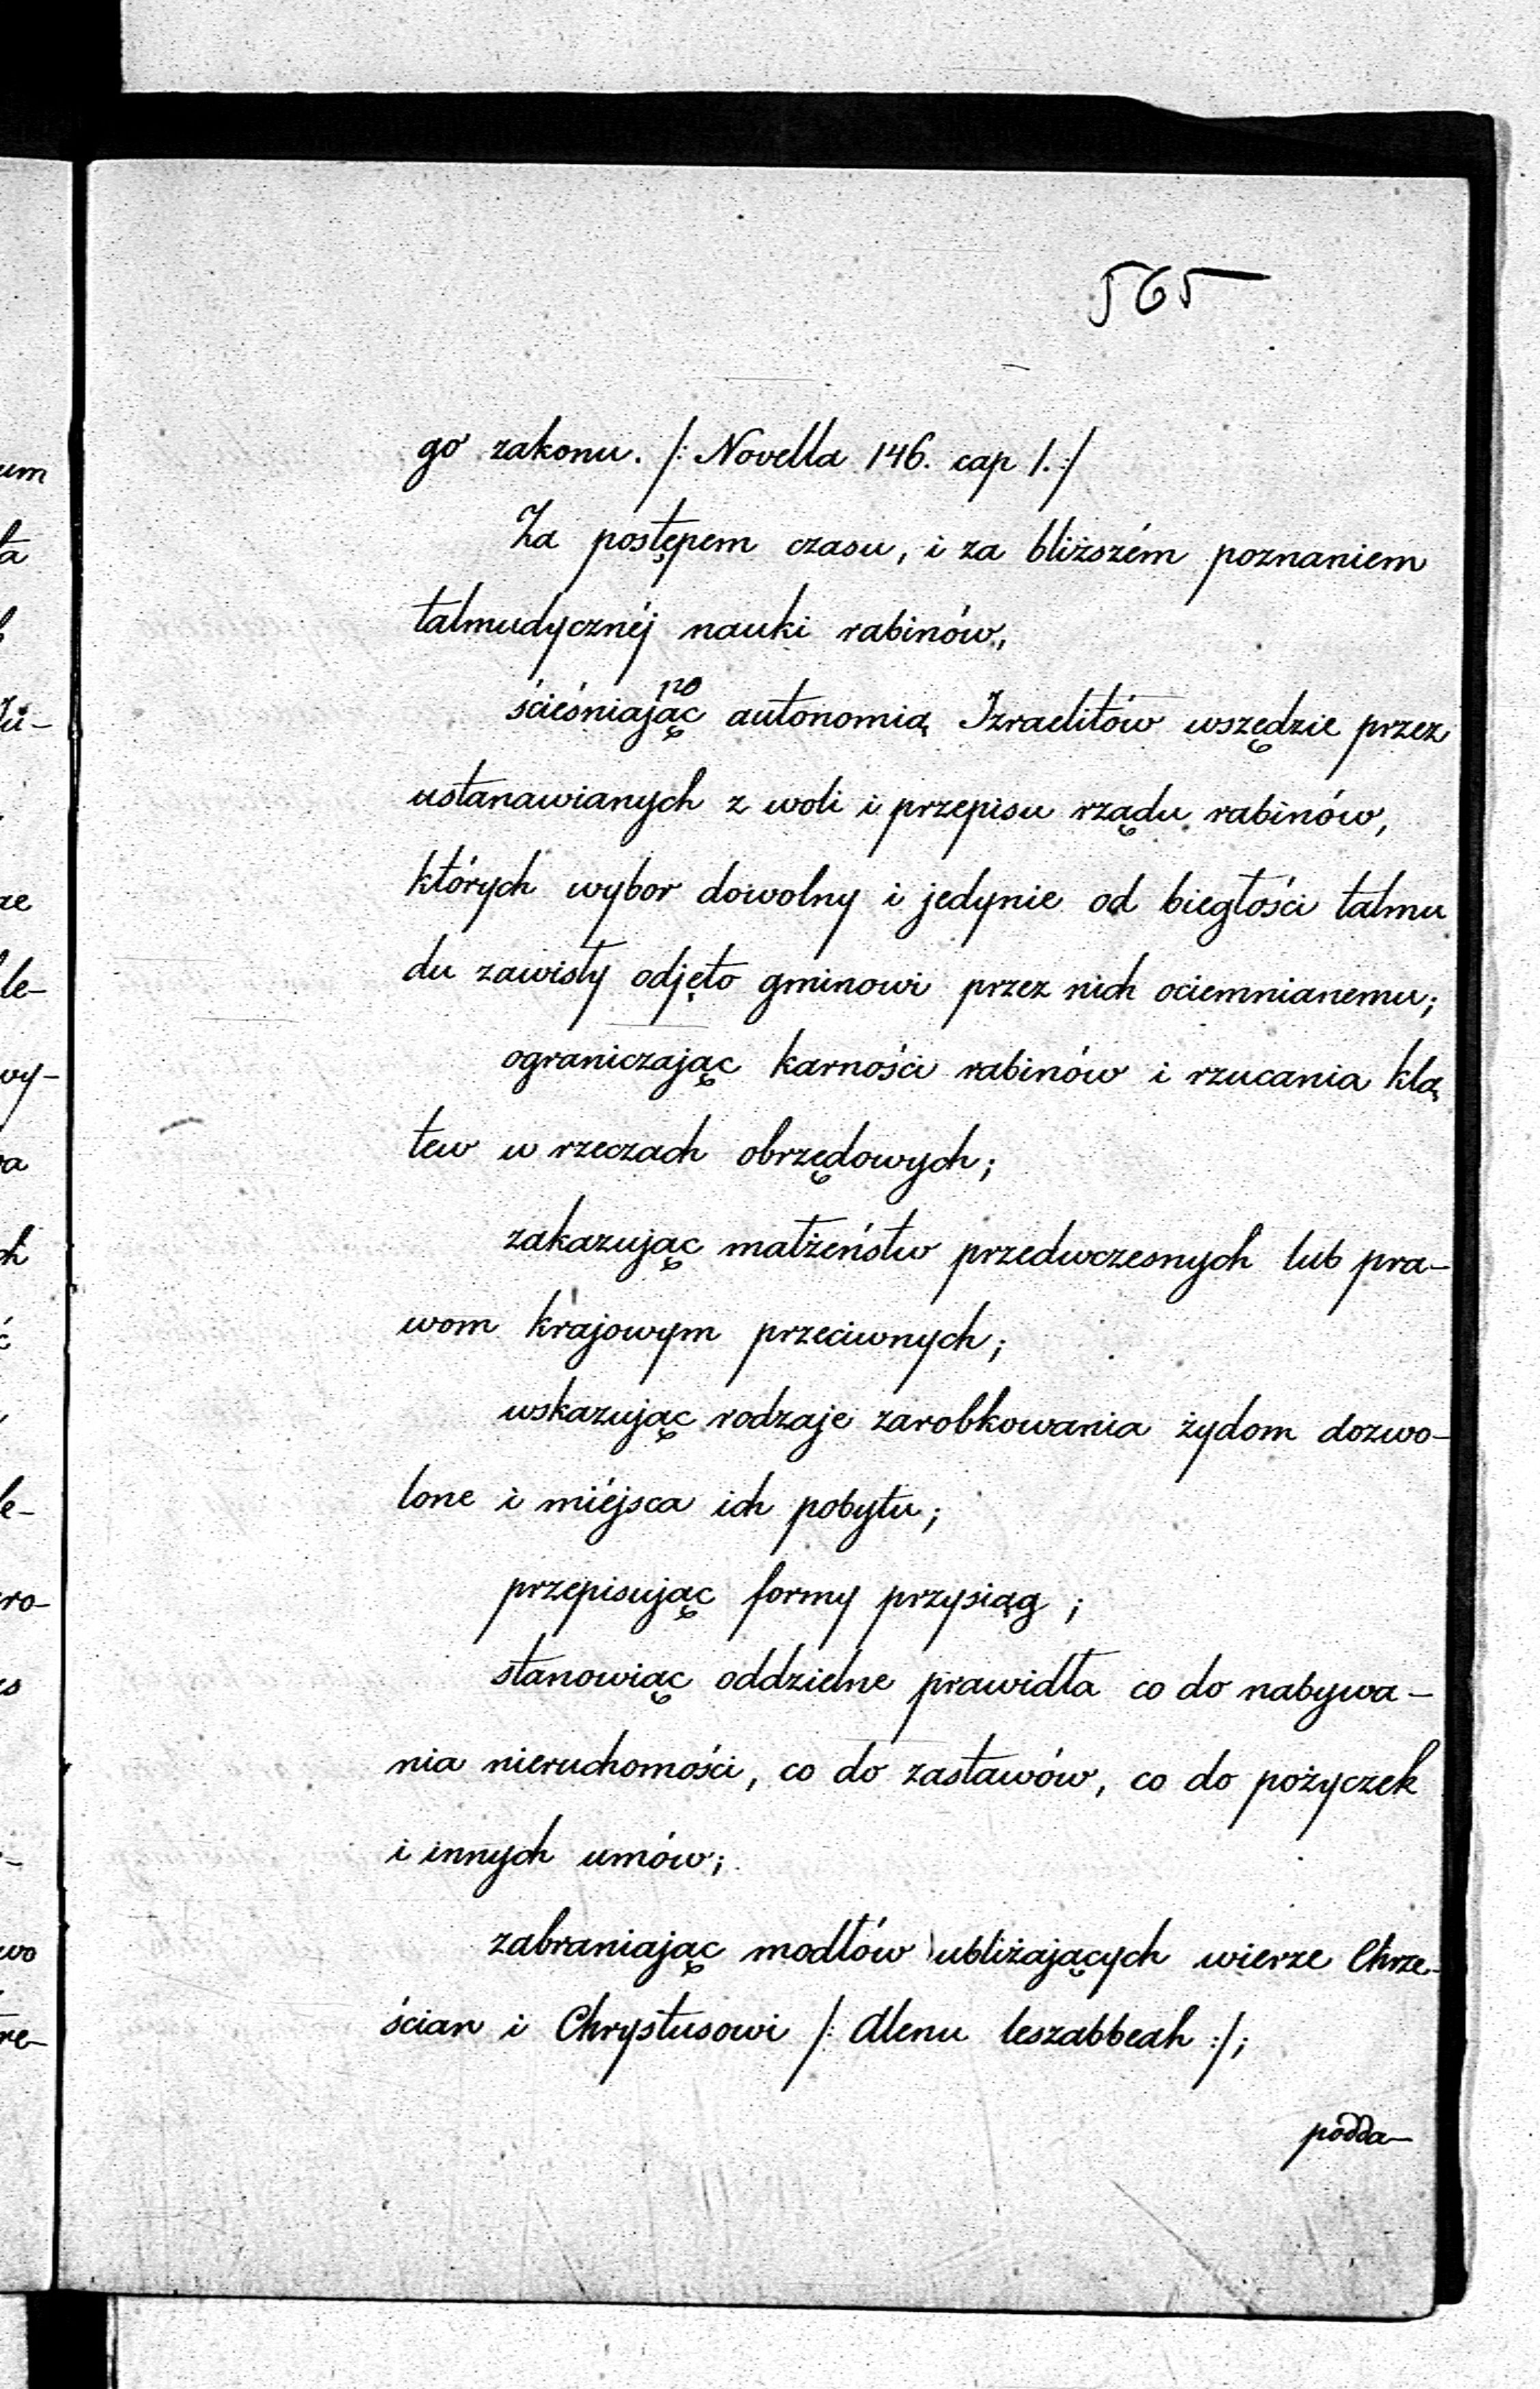 565
go zakonu. /: Novella 146. cap 1. :/
Za postępem czasu, i za bliższém poznaniem
talmudycznéj nauki rabinów,
no
ścieśniając autonomią Izraelitów wszędzie przez
ustanawianych z woli i przepisu rządu rabinów,
których wybor dowolny i jedynie od biegłości talmu
du zawisły odjęto gminowi przez nich ociemnianemu;
ograniczając karności rabinów i rzucania klą
tew w rzeczach obrzędowych;
zakazując małżeństw przedwczesnych lub pra-
wom krajowym przeciwnych;
wskazując rodzaje zarobkowania żydom dozwo-
lone i miéjsca ich pobytu;
przepisując formy przysiąg ;
stanowiąc oddzielne prawidła co do nabywa-
nia nieruchomości, co do zastawów, co do pożyczek
i innych umów;
zabraniając modłów ubliżających wierze Chrze-
ścian i Chrystusowi /: Alenu leszabbeah :/;
podda-